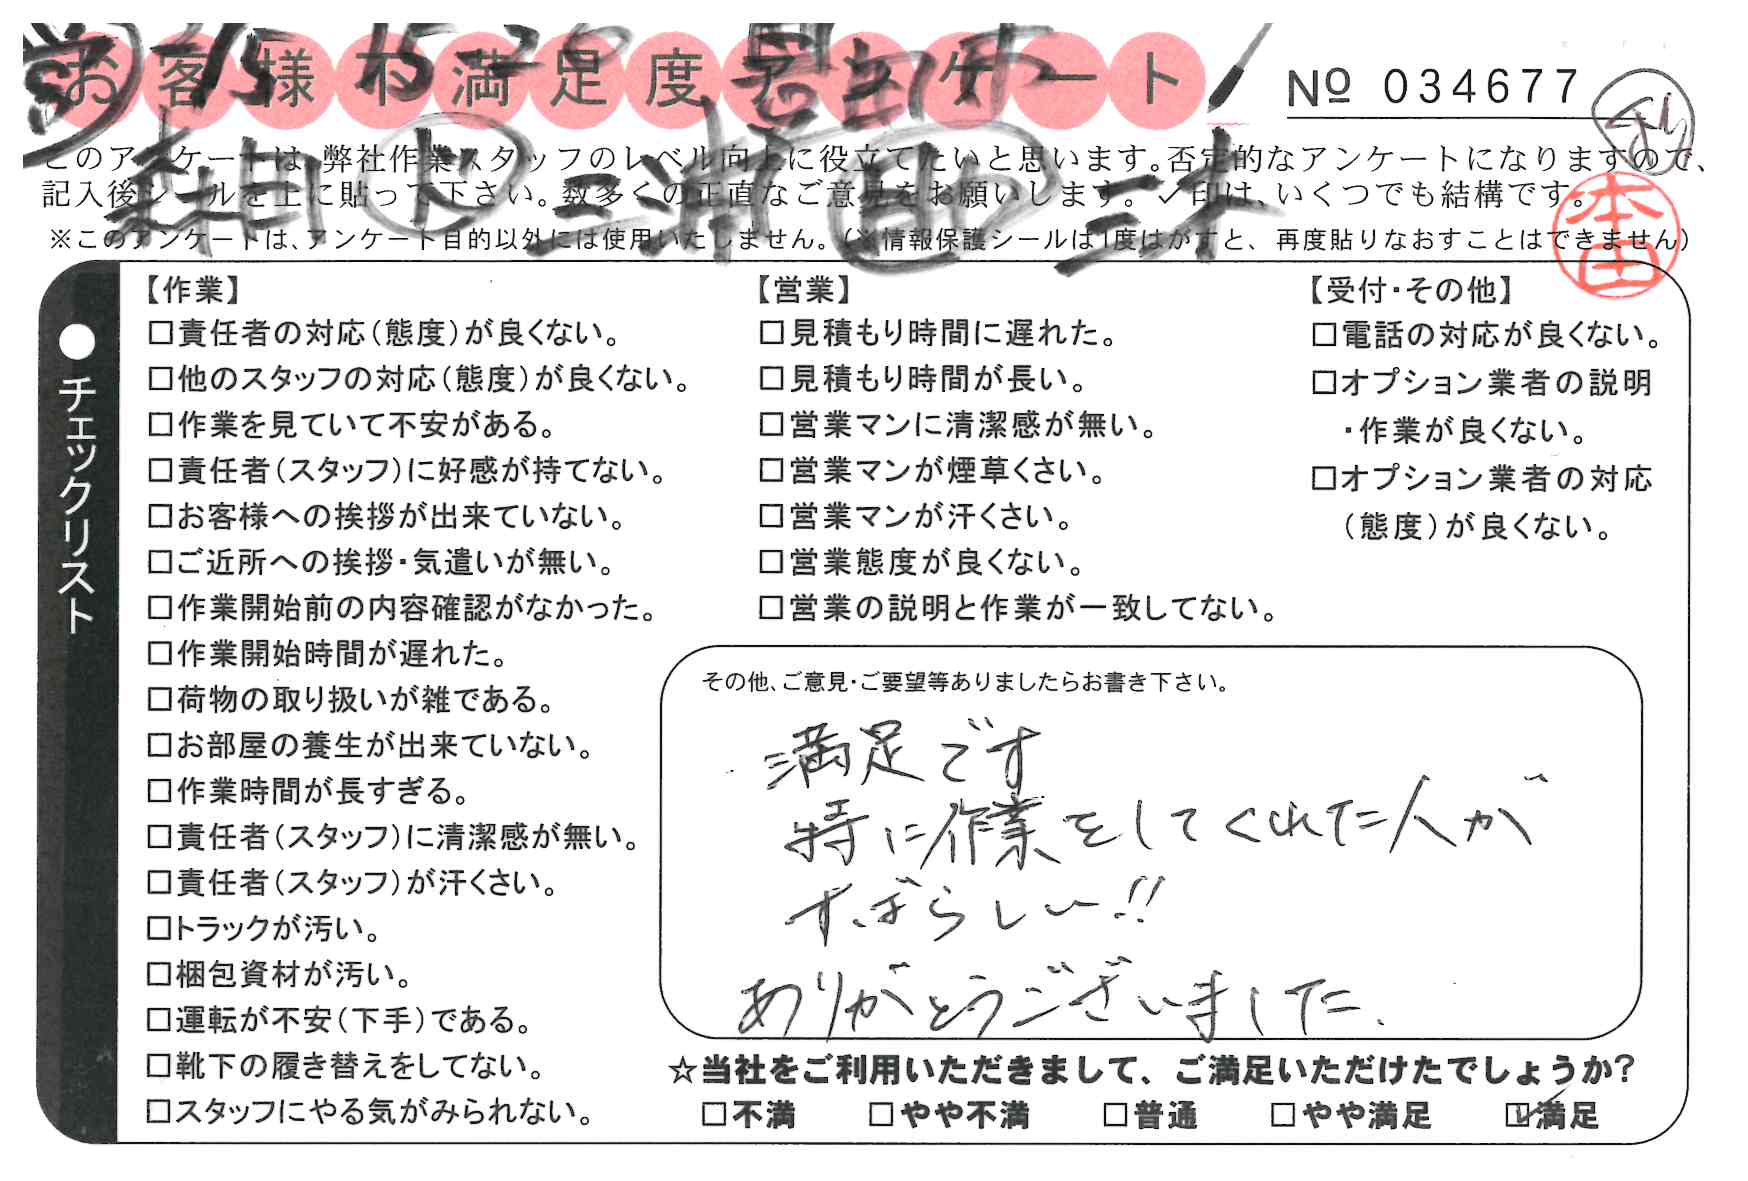 お客様不満足度アンケート
№ 034677
このアンケートは、弊社作業スタッフのレベル向上に役立てたいと思います。否定的なアンケートになりますので、
記入後シールを上に貼って下さい。数多くの正直なご意見をお願いします。✓印は、いくつでも結構です。
※このアンケートは、アンケート目的以外には使用いたしません。(※情報保護シールは1度はがすと、再度貼りなおすことはできません)
本田
三浦
●チェックリスト
【作業】
□責任者の対応(態度)が良くない。
□他のスタッフの対応(態度)が良くない。
□作業を見ていて不安がある。
□責任者(スタッフ)に好感が持てない。
□お客様への挨拶が出来ていない。
□ご近所への挨拶・気遣いが無い。
□作業開始前の内容確認がなかった。
□作業開始時間が遅れた。
□荷物の取り扱いが雑である。
□お部屋の養生が出来ていない。
□作業時間が長すぎる。
□責任者(スタッフ)に清潔感が無い。
□責任者(スタッフ)が汗くさい。
□トラックが汚い。
□梱包資材が汚い。
□運転が不安(下手)である。
□靴下の履き替えをしてない。
□スタッフにやる気がみられない。
【営業】
□見積もり時間に遅れた。
□見積もり時間が長い。
□営業マンに清潔感が無い。
□営業マンが煙草くさい。
□営業マンが汗くさい。
□営業態度が良くない。
□営業の説明と作業が一致してない。
【受付・その他】
□電話の対応が良くない。
□オプション業者の説明
・作業が良くない。
□オプション業者の対応
(態度)が良くない。
その他、ご意見・ご要望等ありましたらお書き下さい。
満足です
特に作業をしてくれた人が
すばらしい!!
ありがとうございました。
☆当社をご利用いただきまして、ご満足いただけたでしょうか?
□不満 □やや不満 □普通 □やや満足 ☑満足